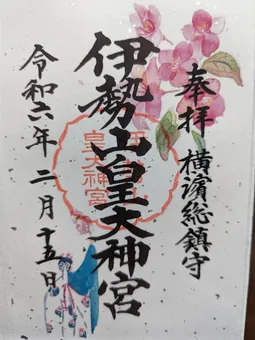 奉拝 横濱総鎮守
伊勢山皇大神宮
令和六年二月十五日
皇大神宮